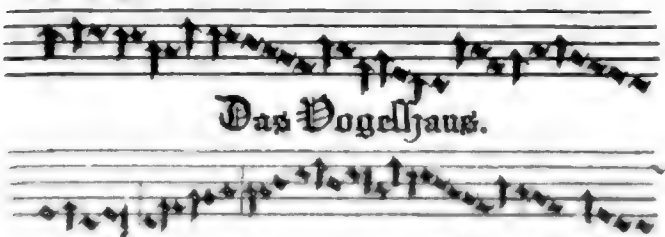 Das Vogelhaus.